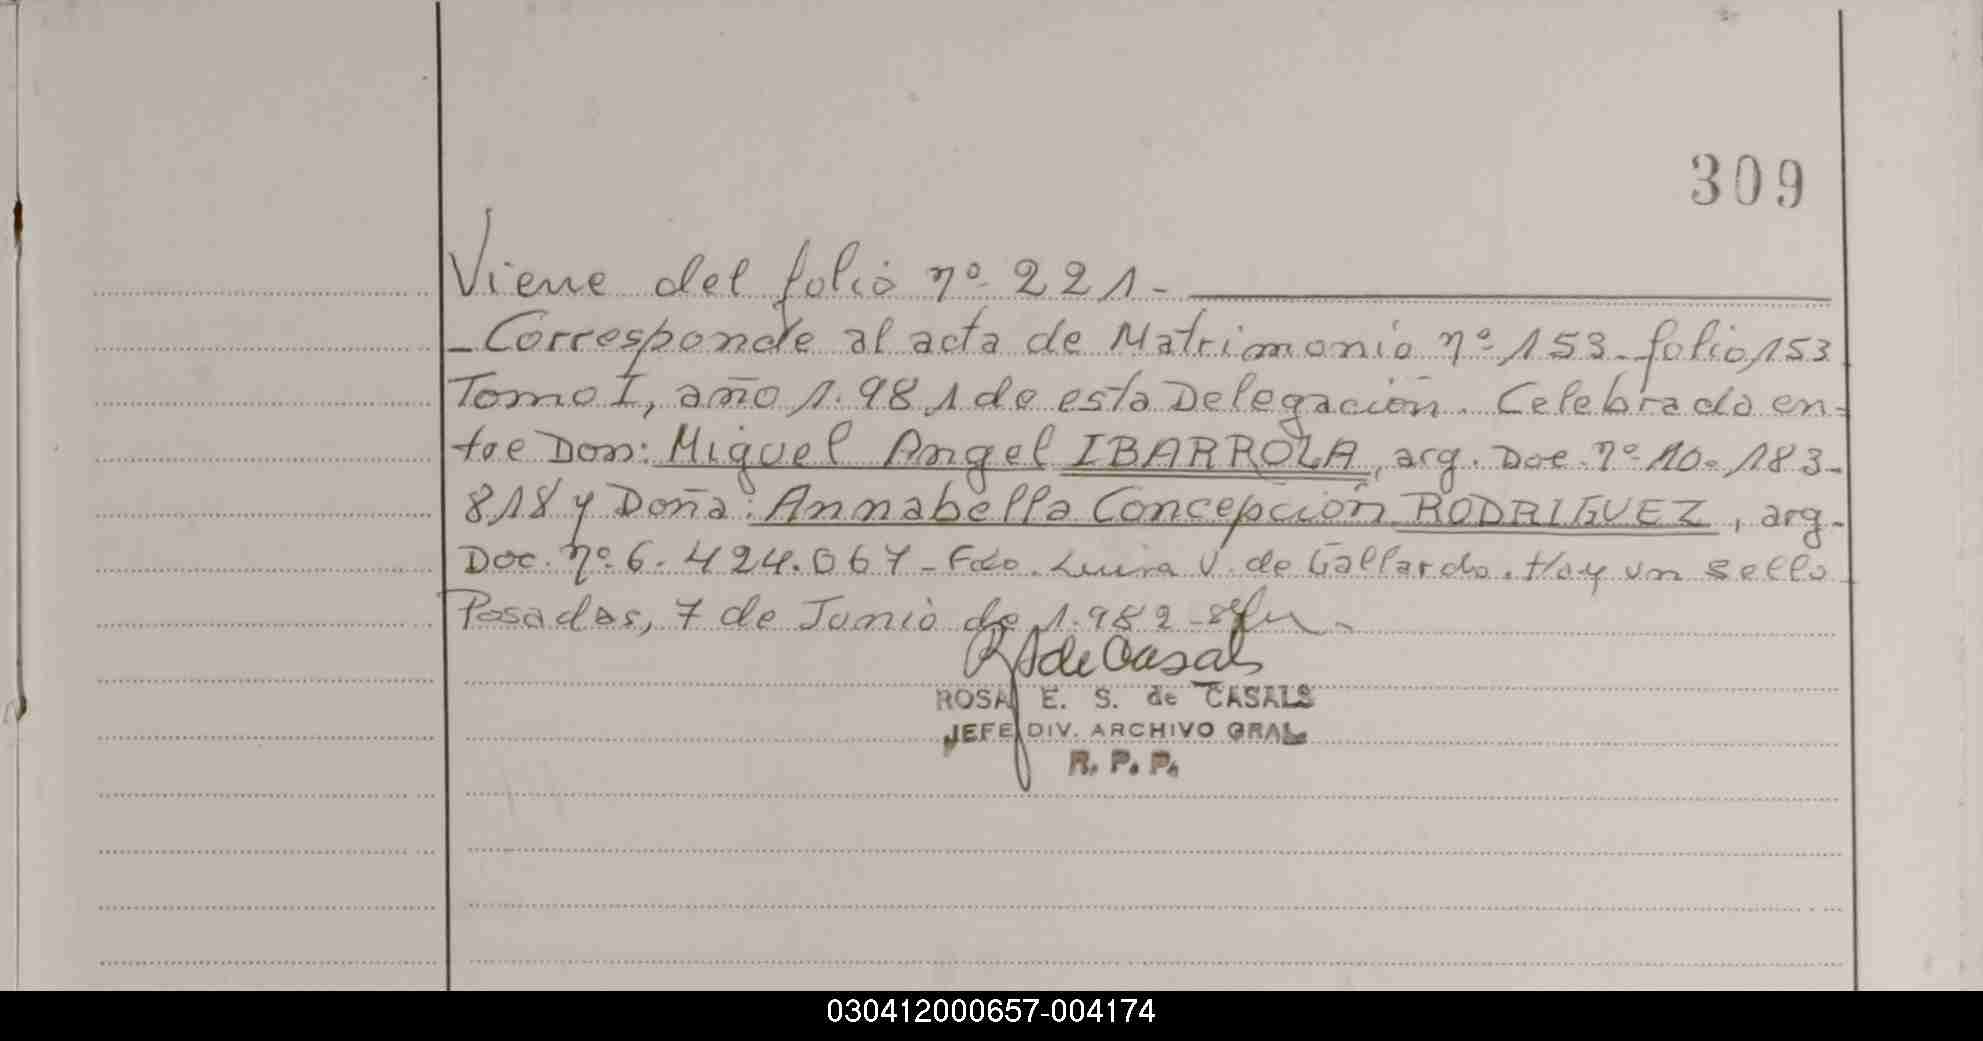 309
Viene del folio nº 221.-
- Corresponde al acta de Matrimonio nº 153 - folio 153
Tomo I, año 1.981 de esta Delegación. Celebrado en-
tre Don: Miguel Angel IBARROLA, arg. Doc. nº 10.183-
818 y Doña: Annabella Concepción RODRIGUEZ, arg.
Doc. nº 6.424.067 - Fdo. Luisa V. de Gallardo. Hay un sello
Posadas, 7 de Junio de 1.982 -
R S de Casals
ROSA E. S. de CASALS
JEFE DIV. ARCHIVO GRAL
R. P. P.
030412000657-004174